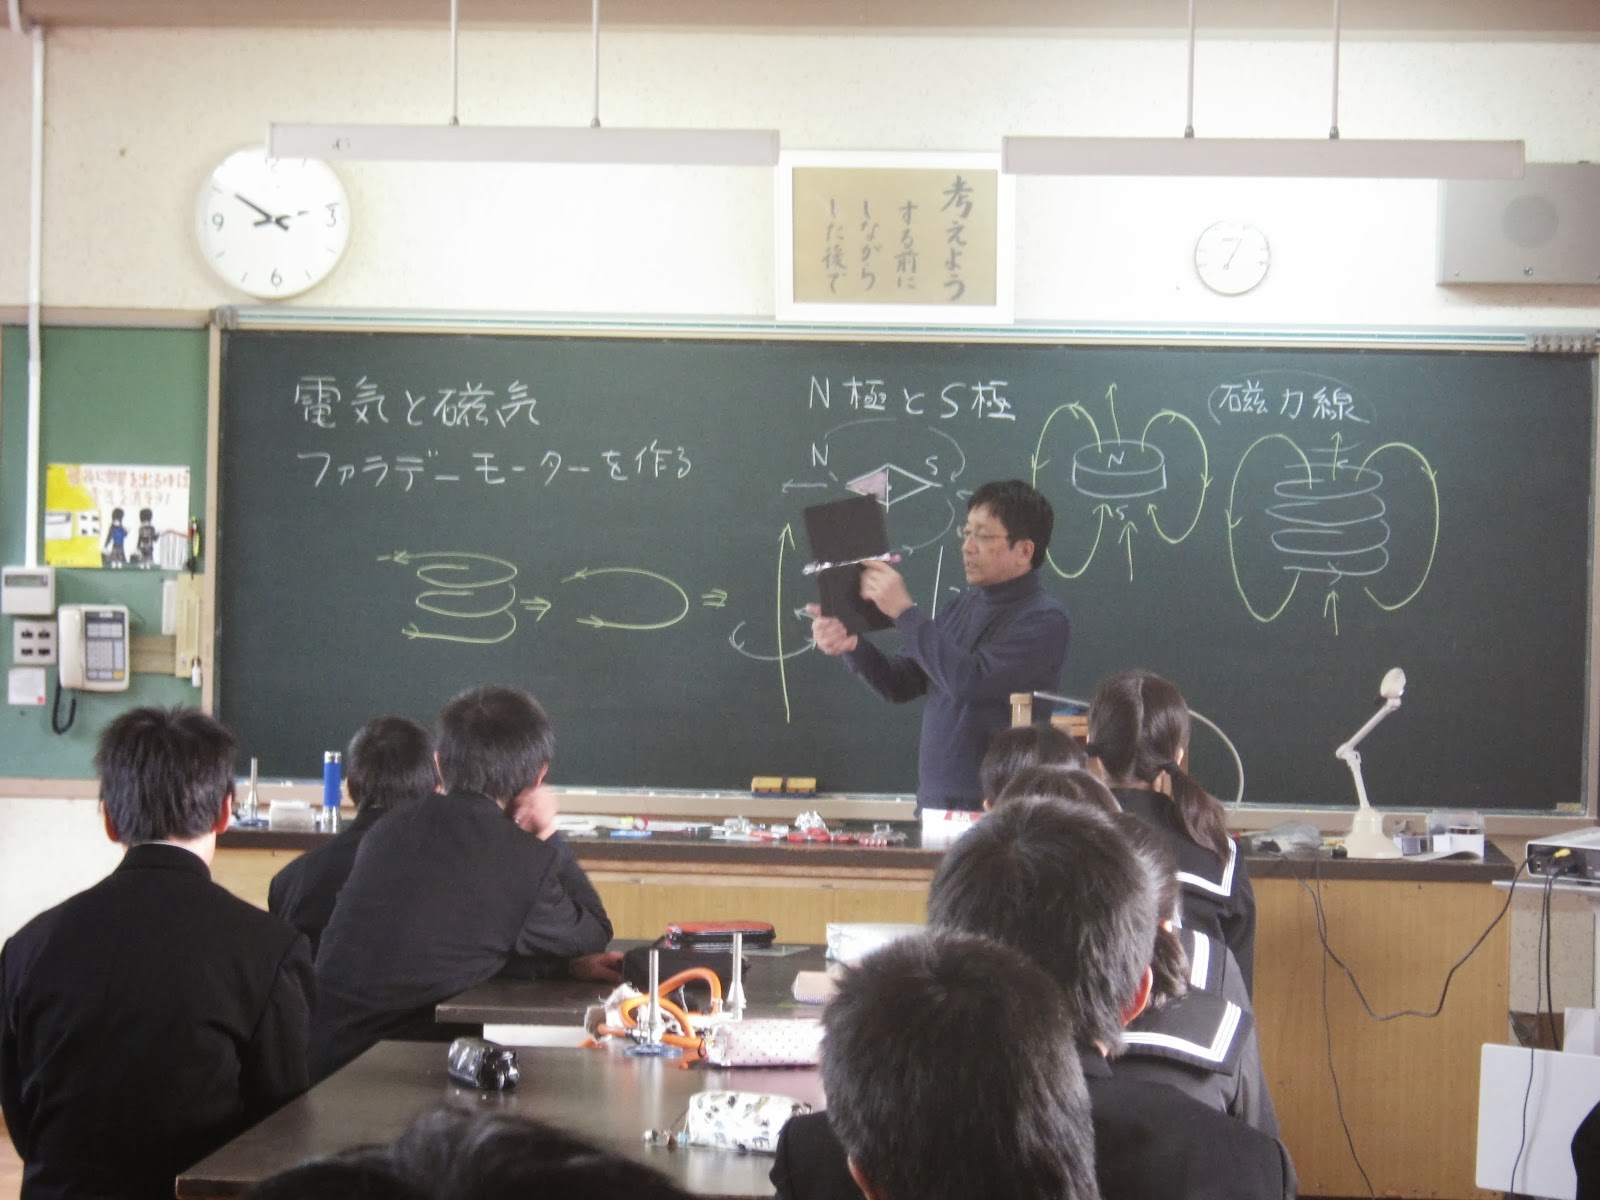 考えよう
する前に
しながら
した後で
電気と磁気
ファラデーモーターを作る
N極とS極
N
S
N
S
磁力線
12
3
6
9